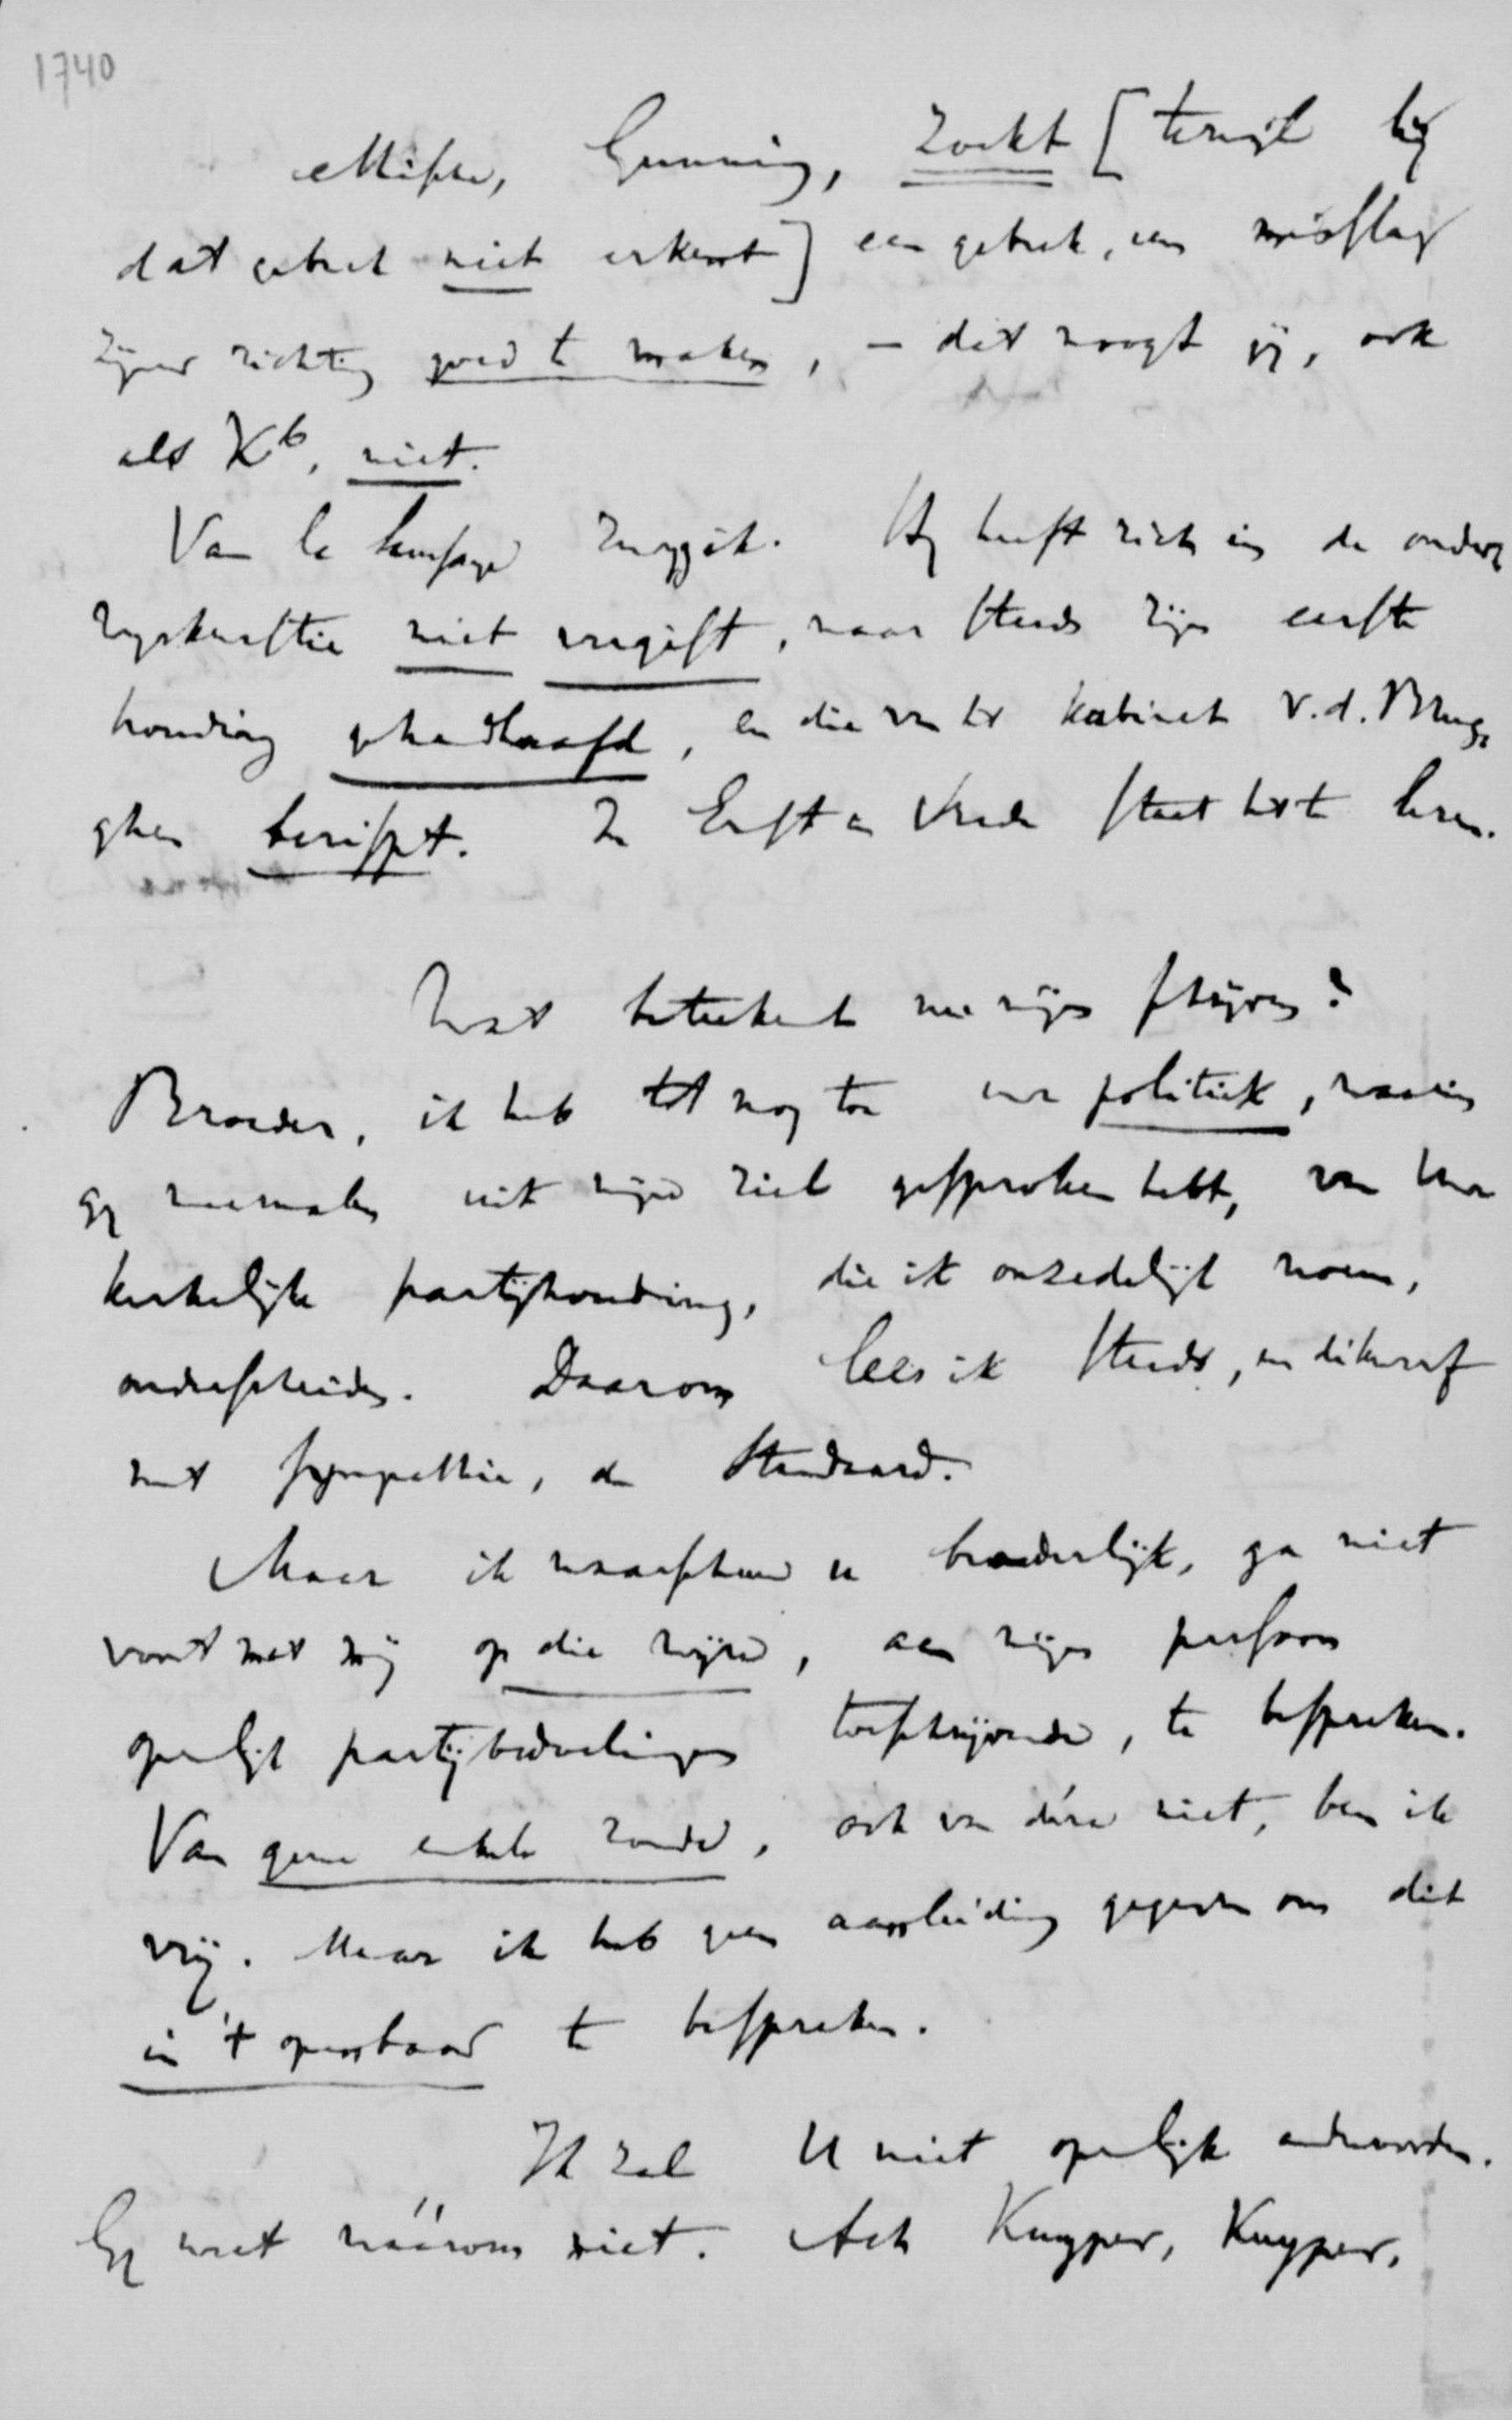 1740
ethische, Gunning, zoekt [terwijl hij
dat gebrek niet erkent] een gebrek, een misslag
zijner richting goed te maken, – dat moogt gij, ook
als K^b, niet.
Van la Saussaye zwijg ik. Hij heeft zich in de onder=
wyskwestie niet vergist, maar steeds zijn eerste
houding gehandhaafd, en die van het kabinet v.d. Brug=
ghen berispt. In Ernst en Vrede staat het te lezen.
Wat beteekent nu mijn schrijven?
Broeder, ik heb tot nog toe uw politiek, waarin
gij meermalen uit mijne ziel gesproken hebt, van Uw
kerkelijke partijhouding, die ik onzedelijk noem,
onderscheiden. Daarom lees ik steeds, en dikwerf
met sympathie, de Standaard.
Maar ik waarschuw u broederlijk, ga niet
voort met mij op die wijze, aan mijn persoon
openlijk partijbedoelingen toeschrijvende, te bespreken.
Van geene enkele zonde, ook van déze niet, ben ik
vrij. Maar ik heb geen aanleiding gegeven om dit
in 't openbaar te bespreken.
Ik zal U niet openlijk antwoorden.
Gij weet wáárom niet. Ach Kuyper, Kuyper,